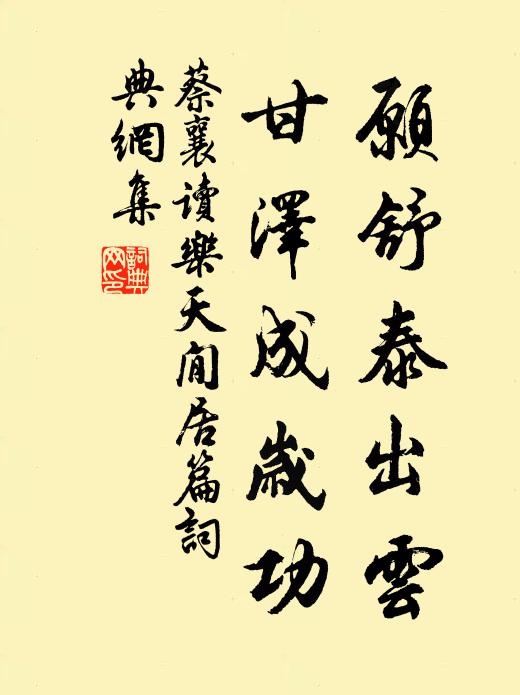 願舒泰出雲
甘澤成歲功
蔡襄讀樂天閒居篇詞
典網集
詞典
网印